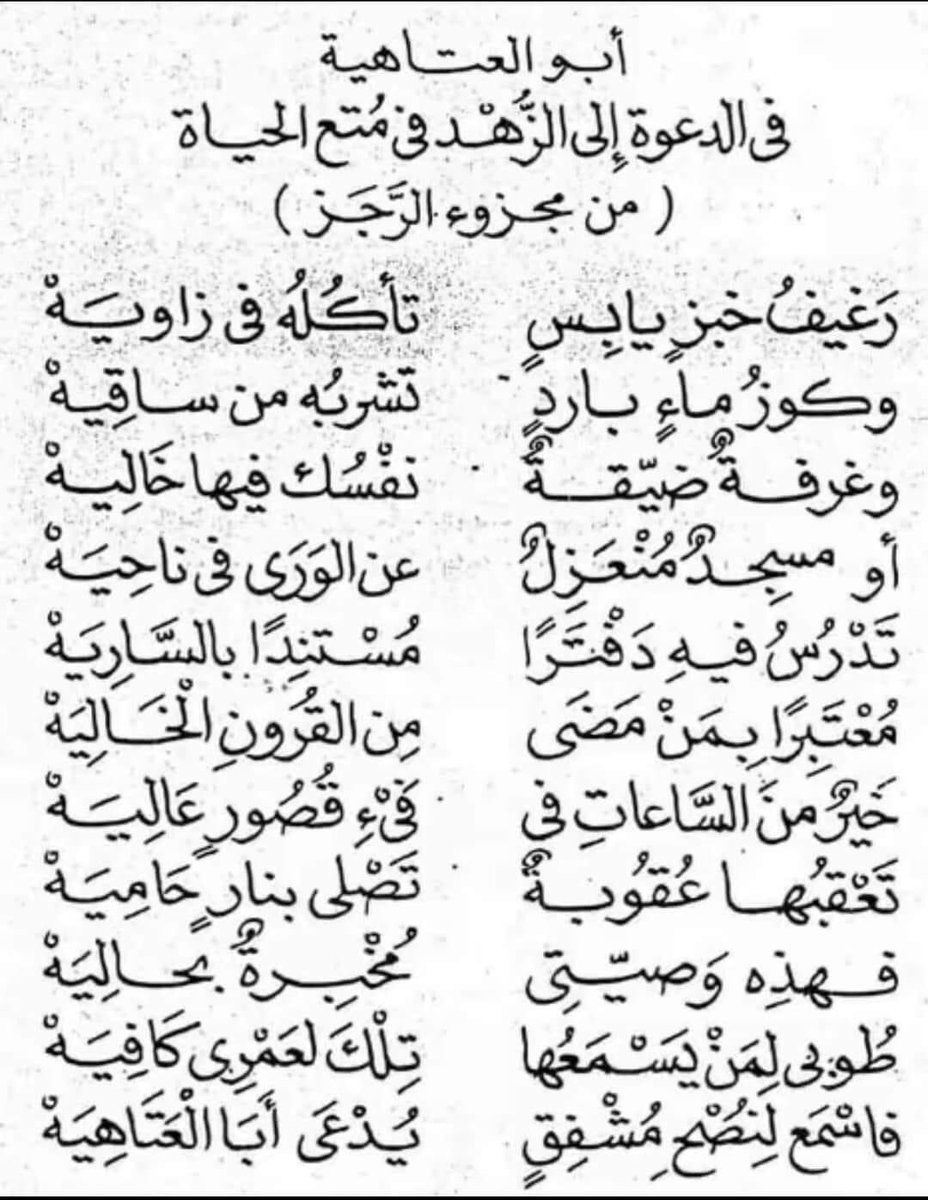 أبو العتاهية
فى الدعوة إِلى الزُّهْد فى مُتع الحياة
( من مجزوء الرَّجَز )
رَغيفُ خبزٍ يابِسٍ تأكُلُهُ فى زاويَهْ
وكوزُ ماءٍ باردٍ تشربُه من ساقِيهْ
وغرفةٌ ضيّقةٌ نفْسُك فيها خَالِيهْ
أو مسجِدٌ مُنْعَزِلٌ عن الوَرَى فى ناحِيَهْ
تَدْرُسُ فيهِ دَفْتَرًا مُسْتنِدًا بالسَّارِيَهْ
مُعْتَبِرًا بِمَنْ مَضَى مِن القُرُونِ الْخَالِيَهْ
خَيرٌ منَ السَّاعاتِ فى فَىْءِ قُصُورٍ عَالِيَهْ
تَعْقبُها عُقُوبةٌ تَصْلى بنارٍ حَامِيَهْ
فهذِه وَصيّتِى مُخْبِرةٌ بحالِيَهْ
طُوبى لِمَنْ يَسْمَعُها تِلْكَ لعَمْرِى كَافِيَهْ
فاسْمَع لِنُصْحِ مِشْفِقٍ يُدْعَى أَبَا الْعَتَاهِيَهْ